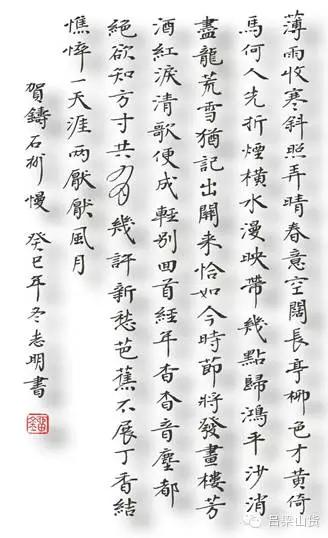 薄雨收寒斜照弄晴春意空闊長亭柳色才黃倚
馬何人先折煙橫水漫映帶幾點歸鴻平沙消
盡龍荒雪猶記出開来恰如今時節將發畫樓芳
酒紅淚清歌便成輕別回首經年杳杳音塵都
絕欲知方寸共有幾許新愁芭蕉不展丁香結
憔悴一天涯兩厭厭風月
賀鑄石州慢 癸巳年冬志明書
吕梁山货